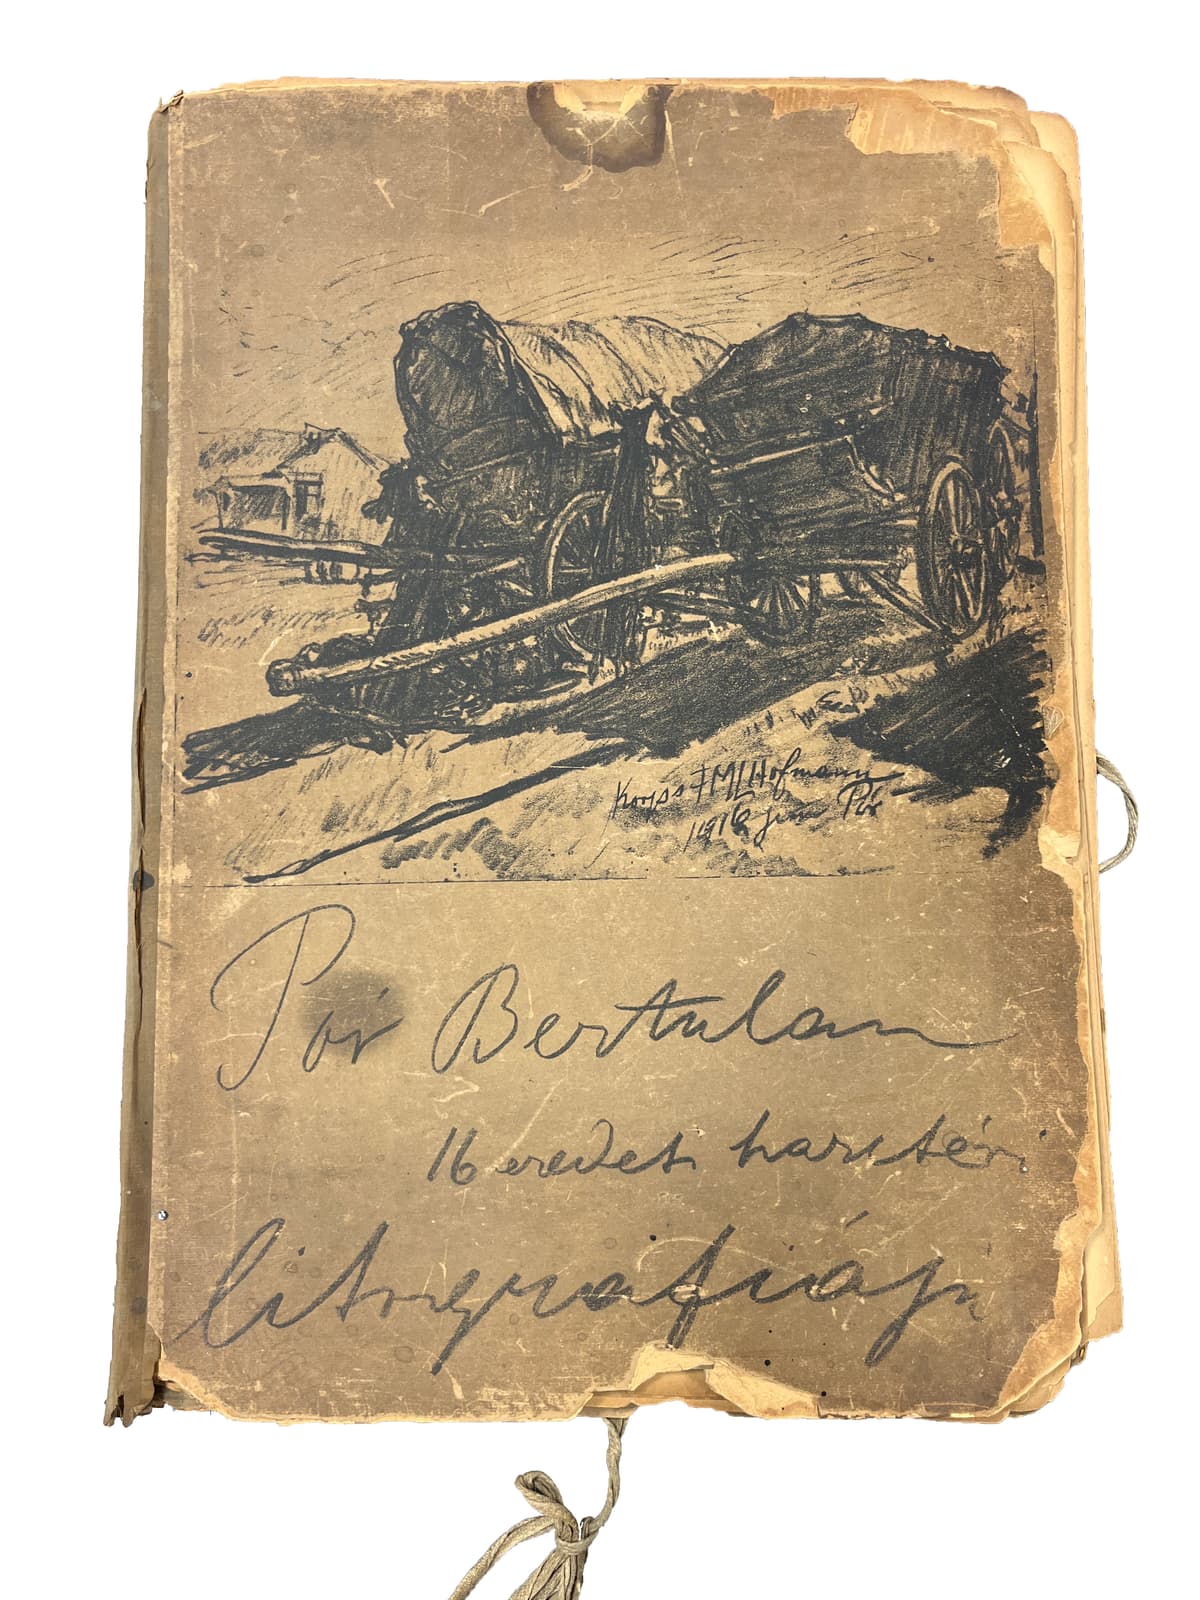 Korps FML Hofmann
1916 jun Pór
Pór Bertalan
16 eredeti harctéri
litografiája